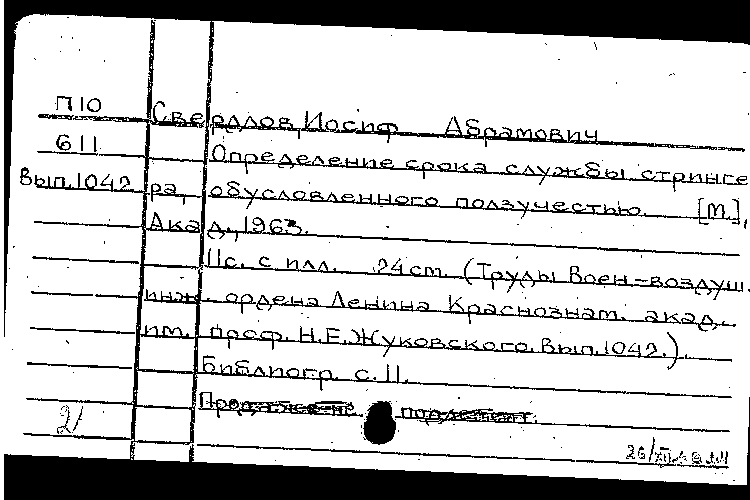 П10 Свердлов, Иосиф Абрамович
611 Определение срока службы стрингe
Вып.1042 ра, обусловленного ползучестью. [М.],
Акад., 1963.
11с. с илл. 24см. (Труды Воен.-воздуш.
инж. ордена Ленина Краснознам. акад.
им. проф. Н.Е.Жуковского. Вып.1042.).
Библиогр. с.11.
2/